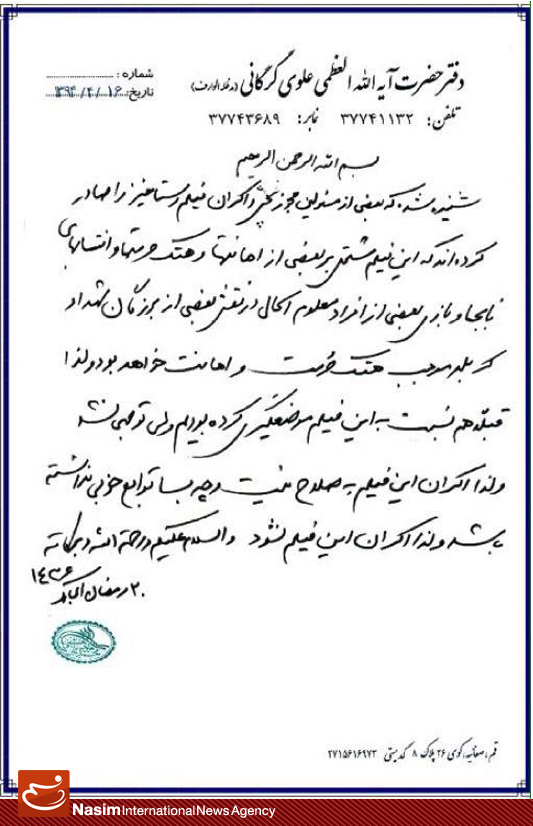 دفتر حضرت آیه الله العظمی علوی گرگانی (مدظله الوارف)
شماره : ................
تاریخ: ۱۳۹۴/۴/۱۶
تلفن: ۳۷۷۴۱۱۳۲ نمابر: ۳۷۷۴۳۶۸۹
بسم الله الرحمن الرحیم
شنیده شده که بعضی از مسئولین مجوز پخش و اکران فیلم رستاخیز را صادر
کرده اند که این فیلم مشتمل بر بعضی از اهانتها و هتک حرمتها و انتسابهای
نابجا و بازی بعضی از افراد معلوم الحال در نقش بعضی از بزرگان شهداء
کربلا موجب هتک حرمت و اهانت خواهد بود ولذا
قبلاً هم نسبت به این فیلم موضعگیری کرده بودیم ولی توجهی نشد
ولذا اکران این فیلم به صلاح نیست و چه بسا توابع خوبی نداشته
باشد ولذا اکران این فیلم نشود والسلام علیکم ورحمة الله وبرکاته
۲۰ رمضان المبارک ۱۴۳۶
قم، صفائیه، کوی ۲۶ پلاک ۸ کدپستی ۲۷۱۵۶۱۶۹۷۳
Nasim International News Agency